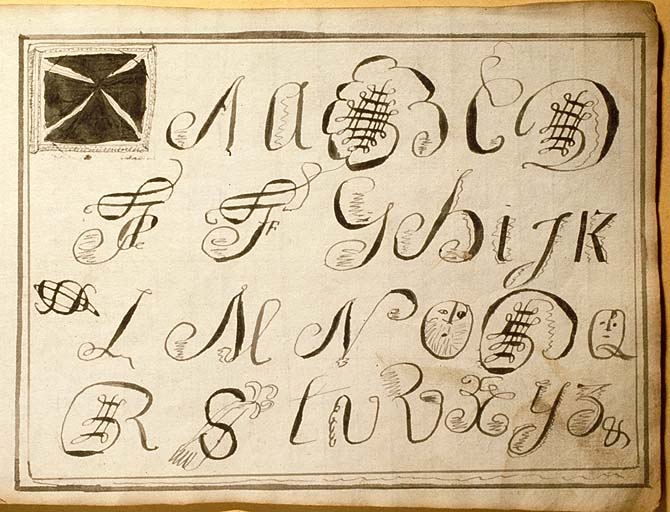 A a B C D
E F G h i J K
L M N O P Q
R S t u V X y z &